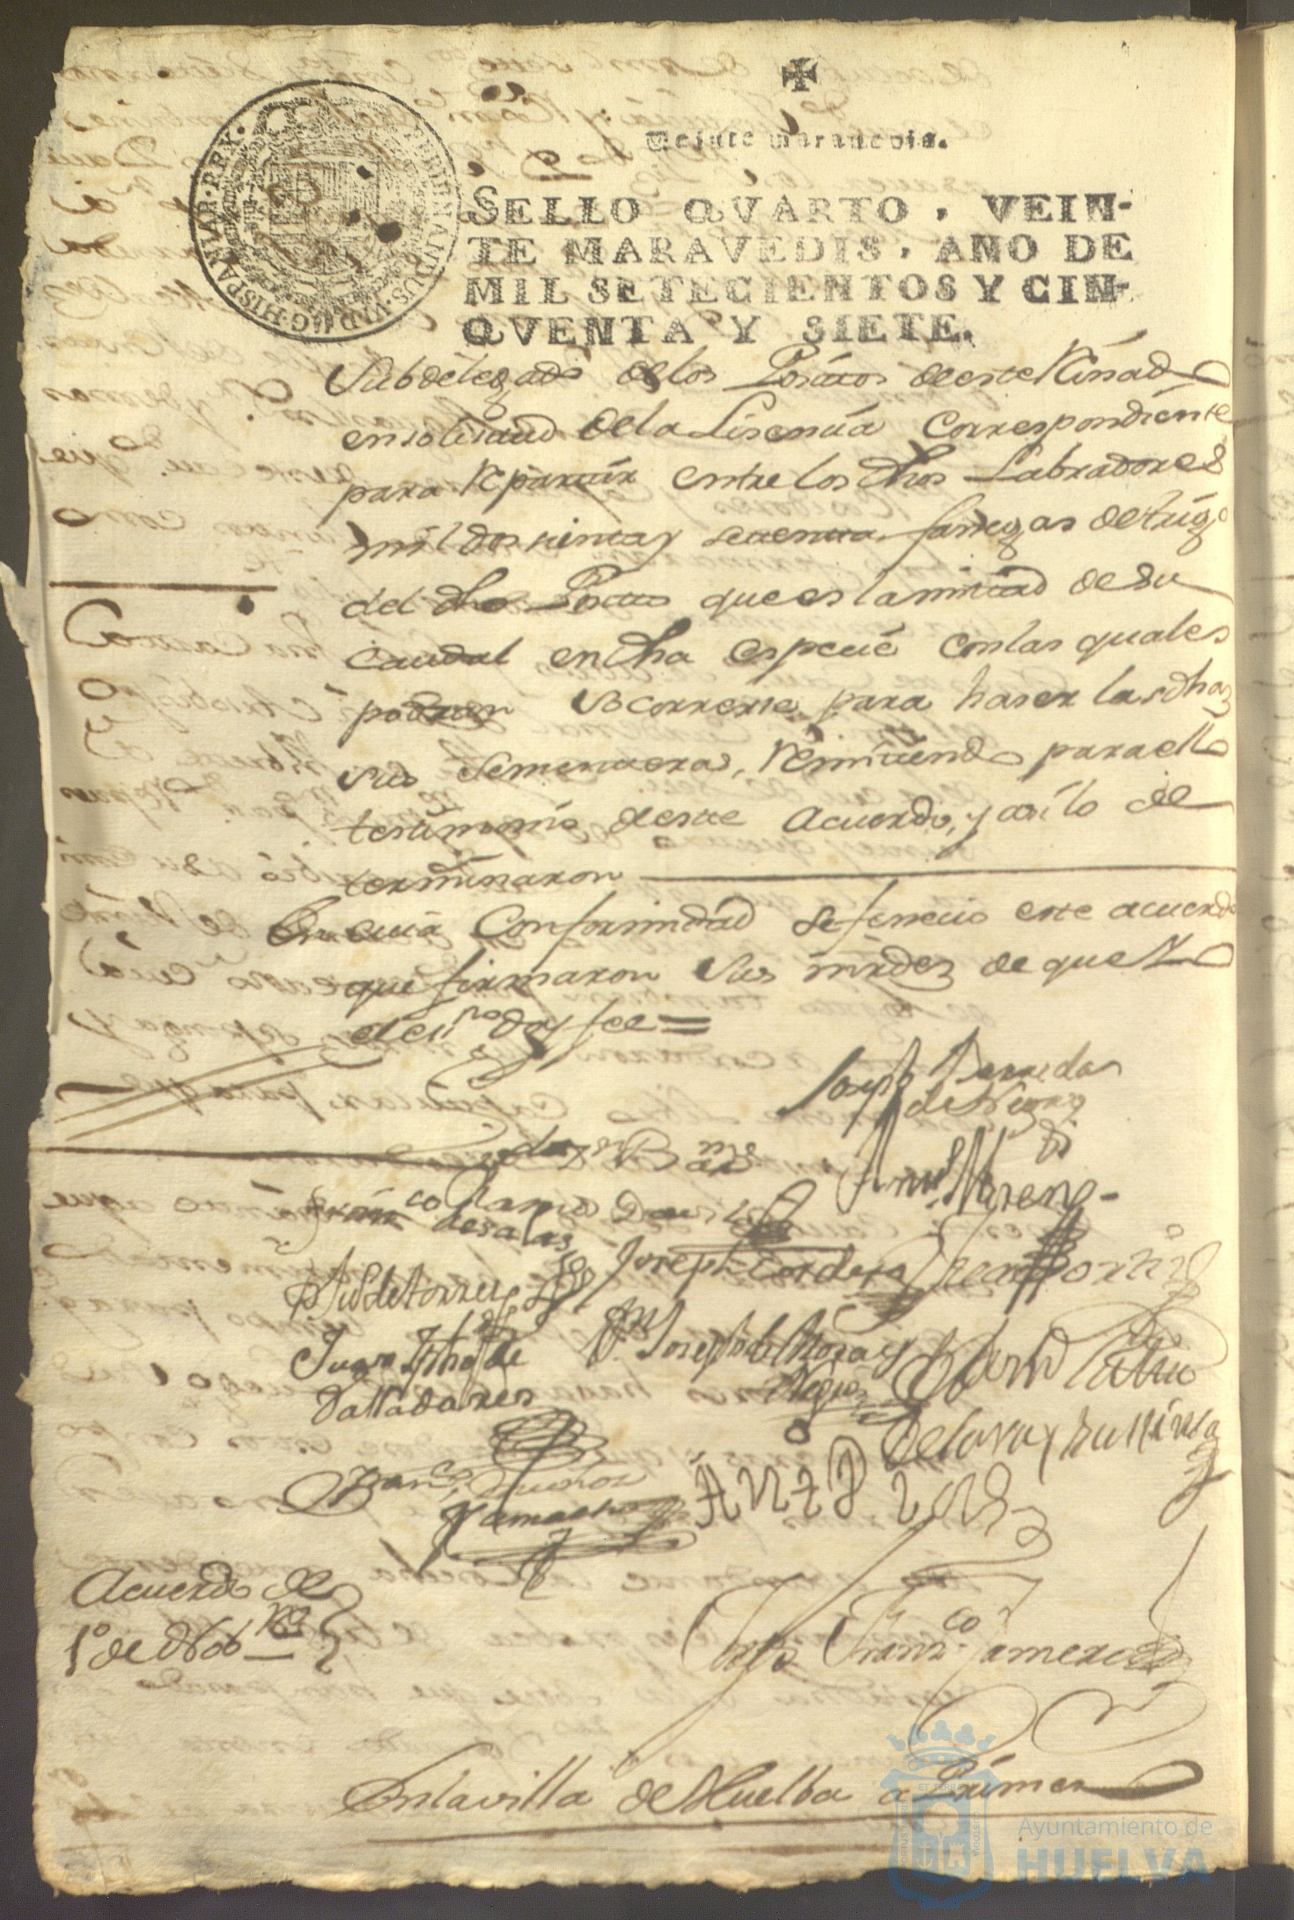 Veinte maravedis.
SELLO QVARTO, VEIN-
TE MARAVEDIS, AÑO DE
MIL SETECIENTOS Y CIN-
QVENTA Y SIETE.
FERDINANDUS·VI·D·G·HISPANIAR·REX·
Subdelegado de los Positos de este Reinado
en solisitud de la Lisencia Correspondiente
para Repartir entre los dhos Labradores
mil dosientas y setenta fanegas de trigo
del dho Posito que es la mitad de su
Caudal en dha especie con las quales
podran socorrerse para haser las dhas
sus sementeras, Remitiendo para ello
testimonio deste Acuerdo, y asi lo de
terminaron
En cuia Conformidad se fenecio este acuerdo
que firmaron sus mrdez de que Yo
el essno doy fee =
Joseph
Moreno
Franco Ramos
de Salas
Joseph Cordero
Juan
Valladares
Joseph de Mora y
Franco Muñoz
Camacho
Acuerdo de
1º de Nobre
Franco
En la villa de Huelba a Primero
Ayuntamiento de
HUELVA